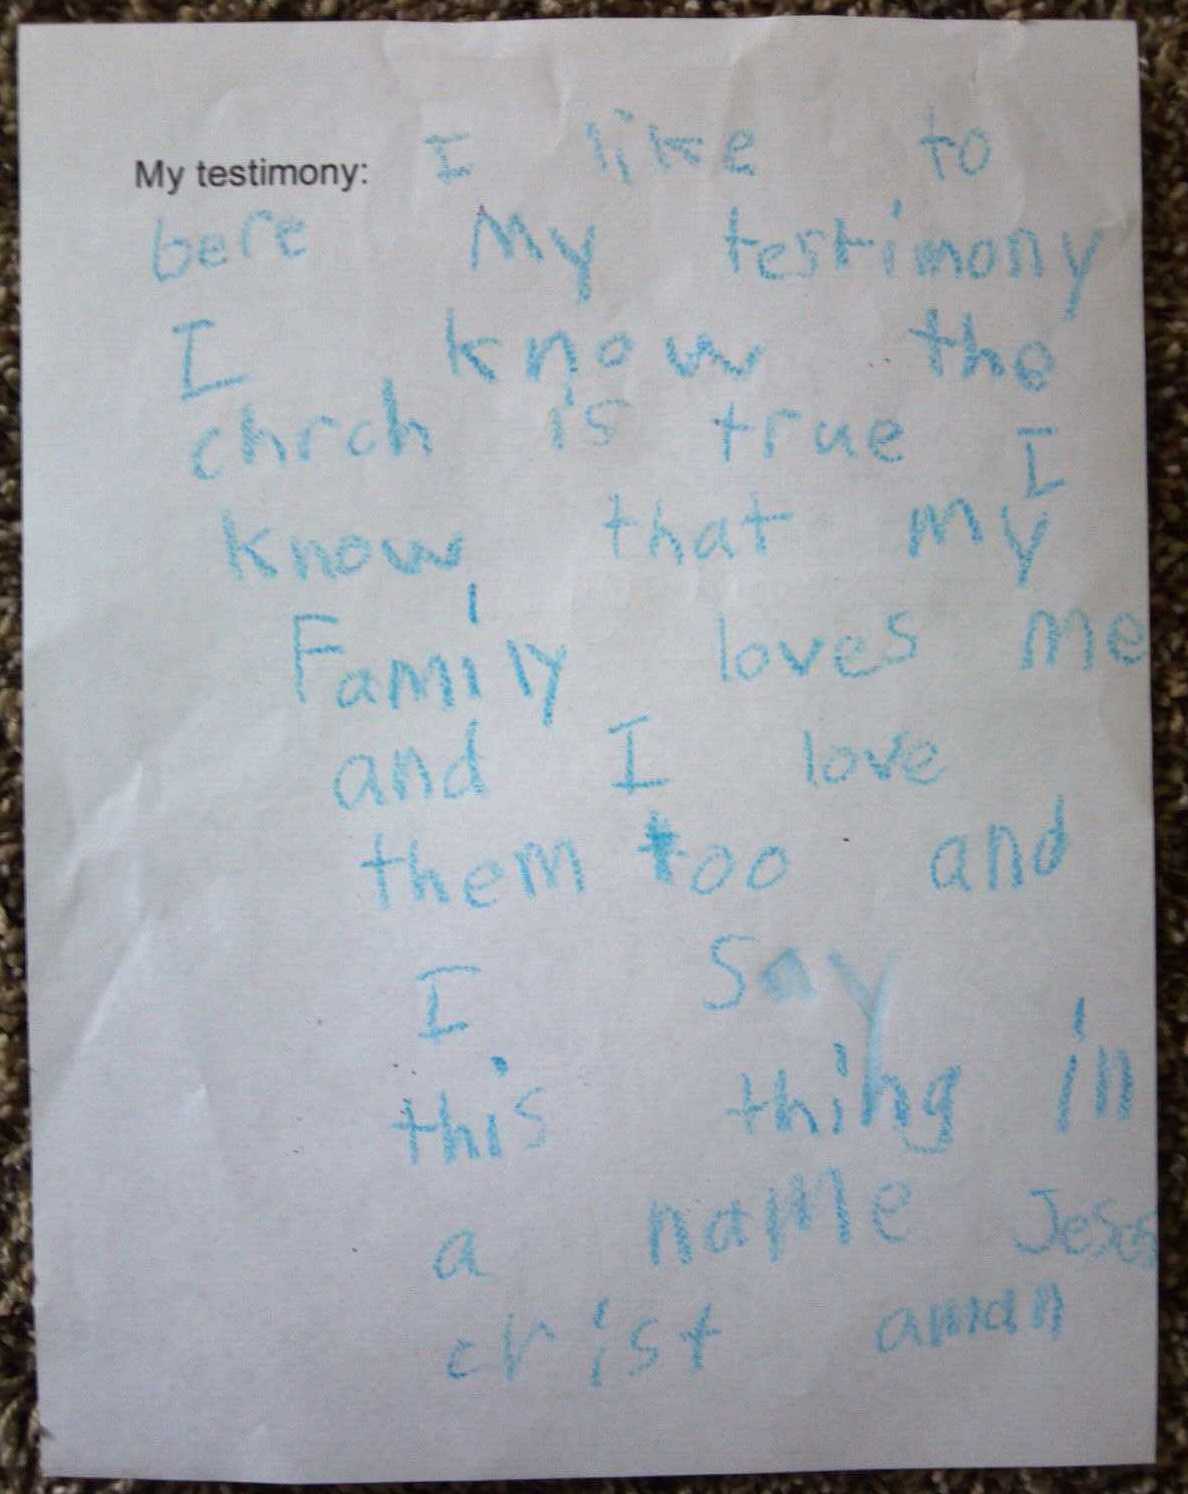 My testimony: I like to
bere My testimony
I know the
chrch is true I
know that my
Family loves me
and I love
them too and
I say
this thing in
a name Jeses
crist aman